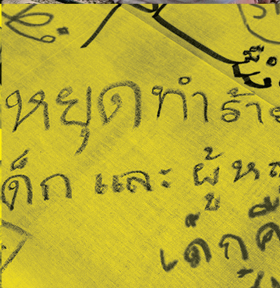 หยุดทำร้าย
เด็ก และ ผู้ห
เด็กคื